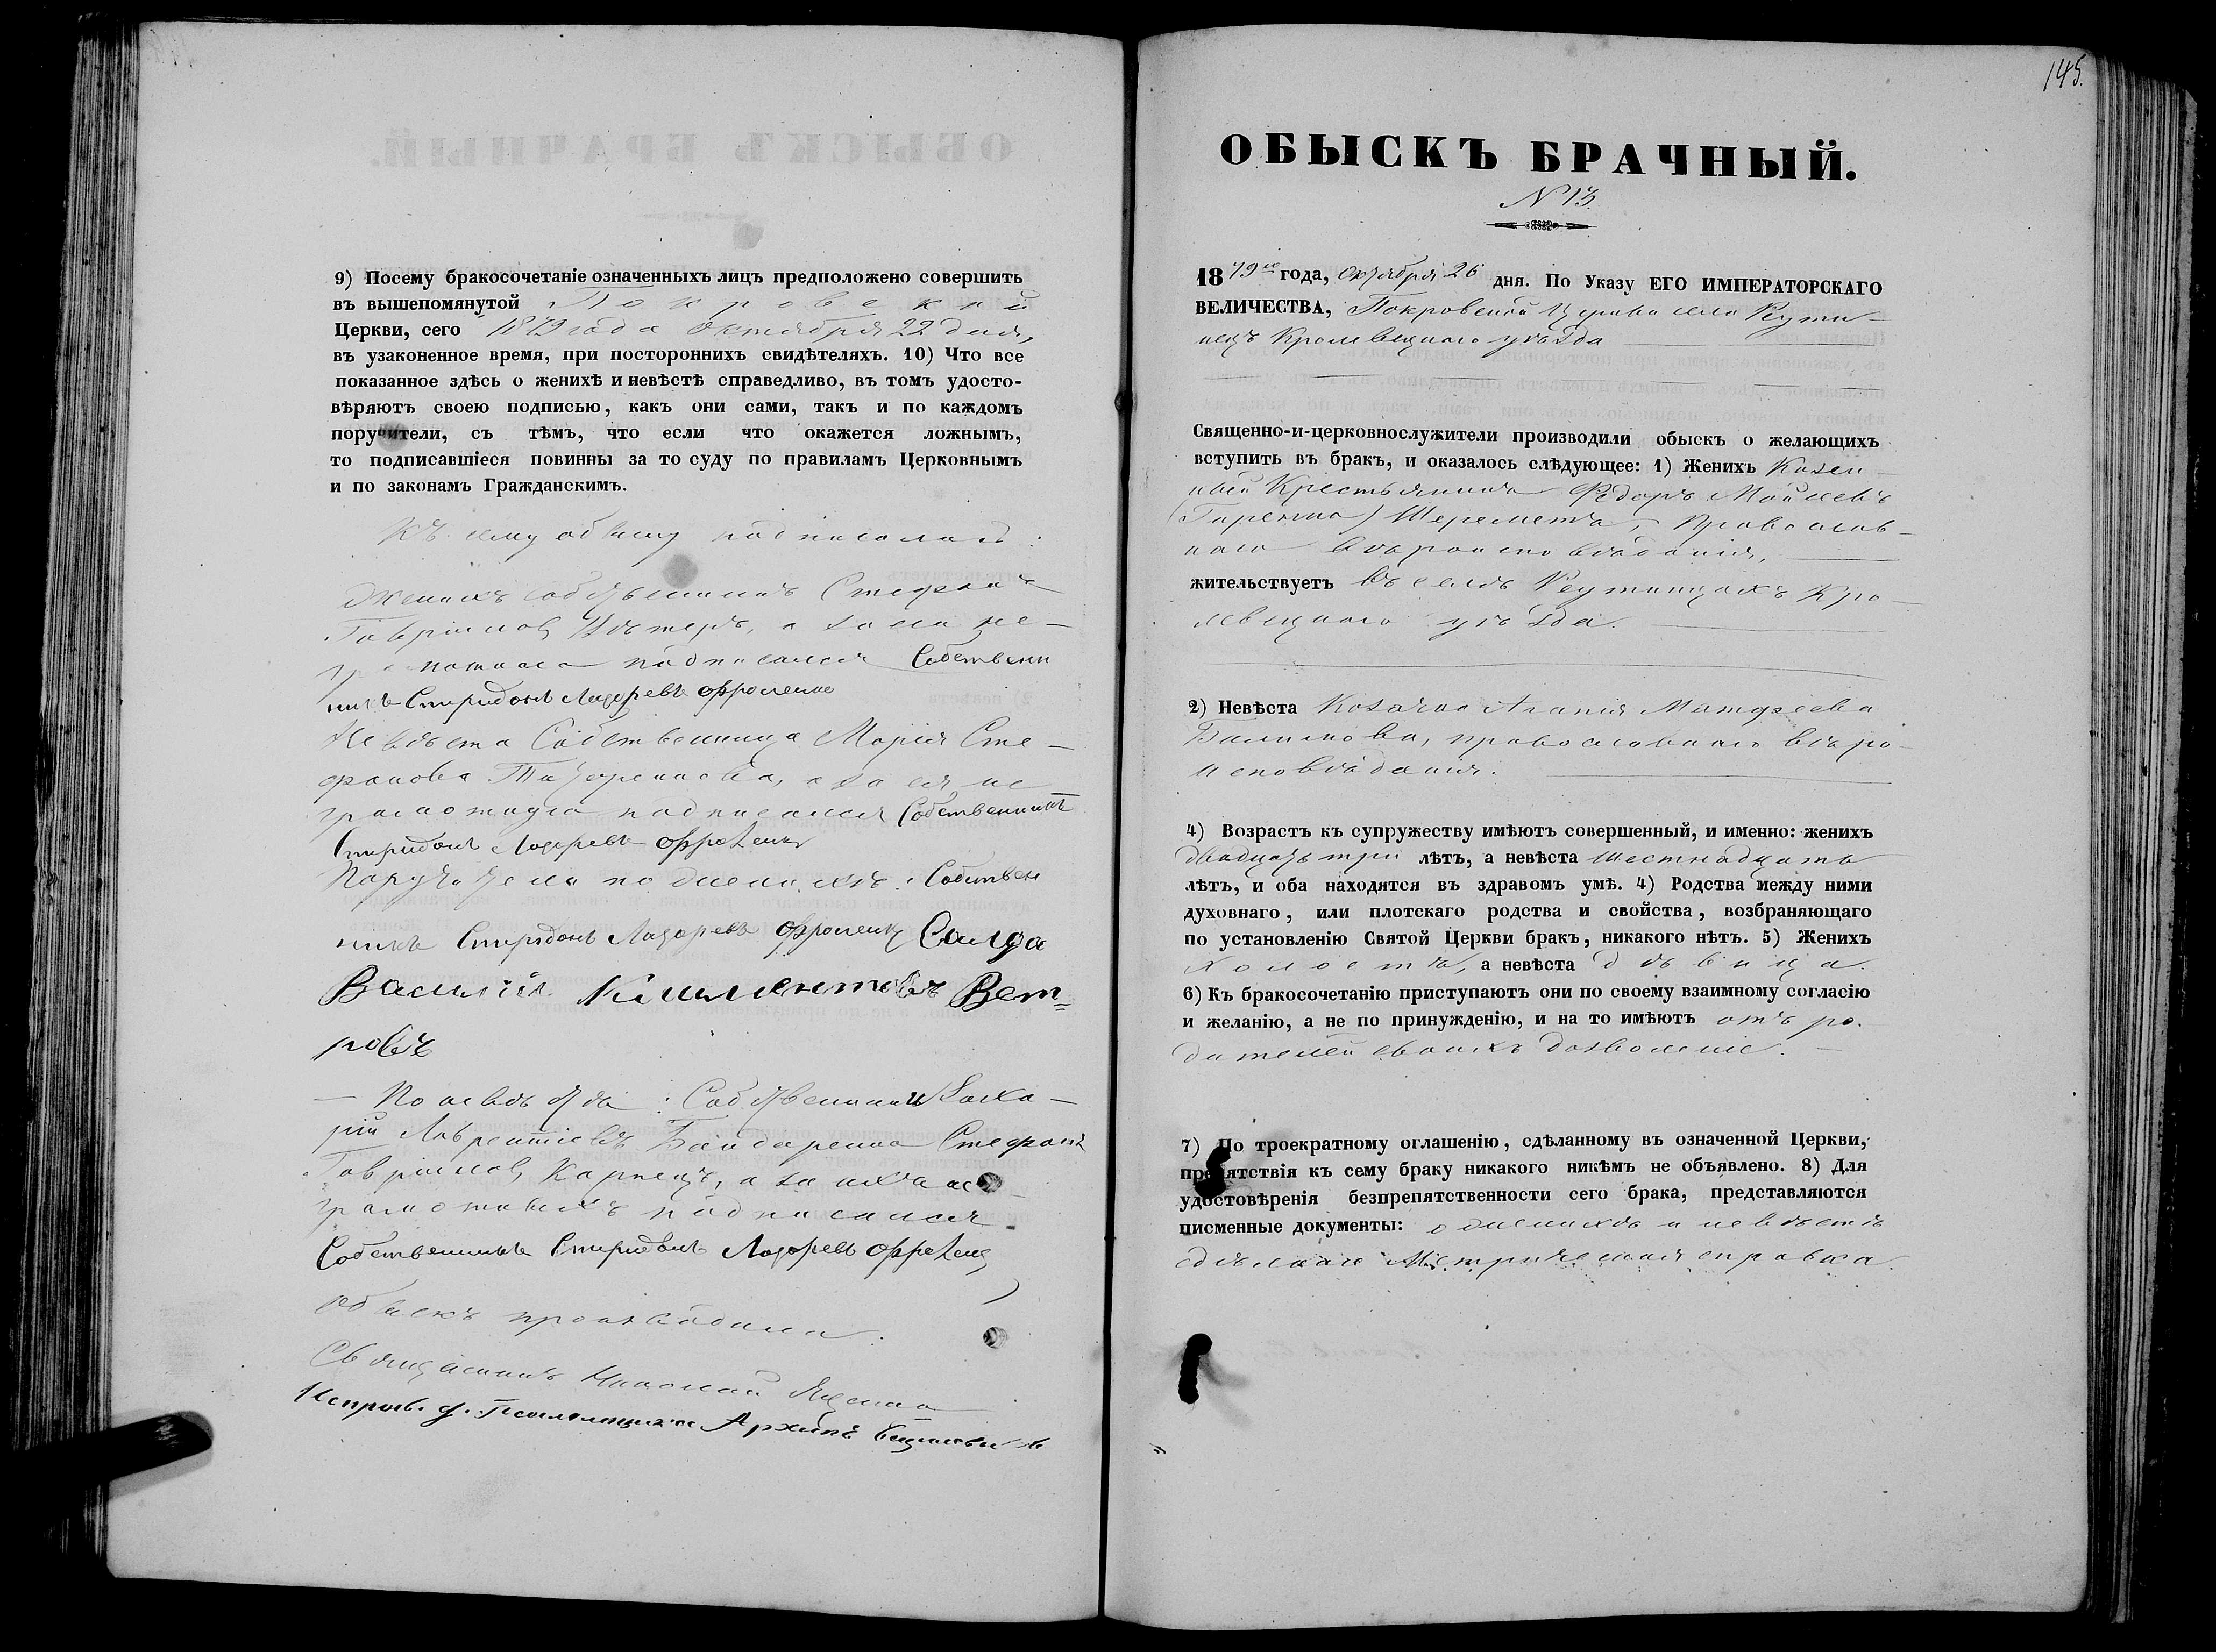 9) Посему бракосочетаніе означенныхъ лицъ предположено совершить
въ вышепомянутой Покровской
Церкви, сего 1879 года Октября 22 дня,
въ узаконенное время, при постороннихъ свидѣтеляхъ. 10) Что все
показанное здѣсь о женихѣ и невѣстѣ справедливо, въ томъ удосто-
вѣряютъ своею подписью, какъ они сами, такъ и по каждомъ
поручители, съ тѣмъ, что если что окажется ложнымъ,
то подписавшіеся повинны за то суду по правиламъ Церковнымъ
и по законамъ Гражданскимъ.
Къ сему обыску подписались:
Женихъ собственникъ Стефанъ
Гавріиловъ а за его не-
грамотнаго подписался Собственни
къ Спиридонъ Лазоревъ
Невѣста Собственница Марія Сте-
фанова а за ея не
грамотную подписался Собственникъ
Спиридонъ Лазоревъ
Поручители по женихѣ: Собствен
никъ Спиридонъ Лазоревъ
Василій Климентовъ Вет=
ровъ
По невѣстѣ: Собственники Заха-
рій Лаврентіевъ Бондаренко Стефанъ
Гавріиловъ Карпецъ, а за ихъ не
грамотныхъ подписался
Собственникъ Спиридонъ Лазоревъ
Обыскъ производили:
Священникъ Николай Яценко
Исправ. д. Псаломщика Архипъ
145.
ОБЫСКЪ БРАЧНЫЙ.
N 13.
1879го года, Октября 26 дня. По Указу ЕГО ИМПЕРАТОРСКАГО
ВЕЛИЧЕСТВА, Покровской Церкви села Реути-
нецъ Кролевецкаго уѣзда
Священно-и-церковнослужители производили обыскъ о желающихъ
вступить въ бракъ, и оказалось слѣдующее: 1) Женихъ Казен-
ный Крестьянинъ Федоръ
Шереметъ, православ-
наго вѣроисповѣданія,
жительствуетъ въ селѣ Реутинцахъ Кро-
левецкаго уѣзда.
2) Невѣста Козачка Агапія Матфеева
православнаго вѣро-
исповѣданія.
4) Возрастъ къ супружеству имѣютъ совершенный, и именно: женихъ
двадцать три лѣтъ, а невѣста шестнадцать
лѣтъ, и оба находятся въ здравомъ умѣ. 4) Родства между ними
духовнаго, или плотскаго родства и свойства, возбраняющаго
по установленію Святой Церкви бракъ, никакого нѣтъ. 5) Женихъ
холостъ, а невѣста дѣвица.
6) Къ бракосочетанію приступаютъ они по своему взаимному согласію
и желанію, а не по принужденію, и на то имѣютъ отъ ро-
дителей своихъ дозволеніе.
7) По троекратному оглашенію, сдѣланному въ означенной Церкви,
препятствія къ сему браку никакого никѣмъ не объявлено. 8) Для
удостовѣренія безпрепятственности сего брака, представляются
писменные документы: о женихѣ и невѣстѣ
сдѣлана Метрическая справка.